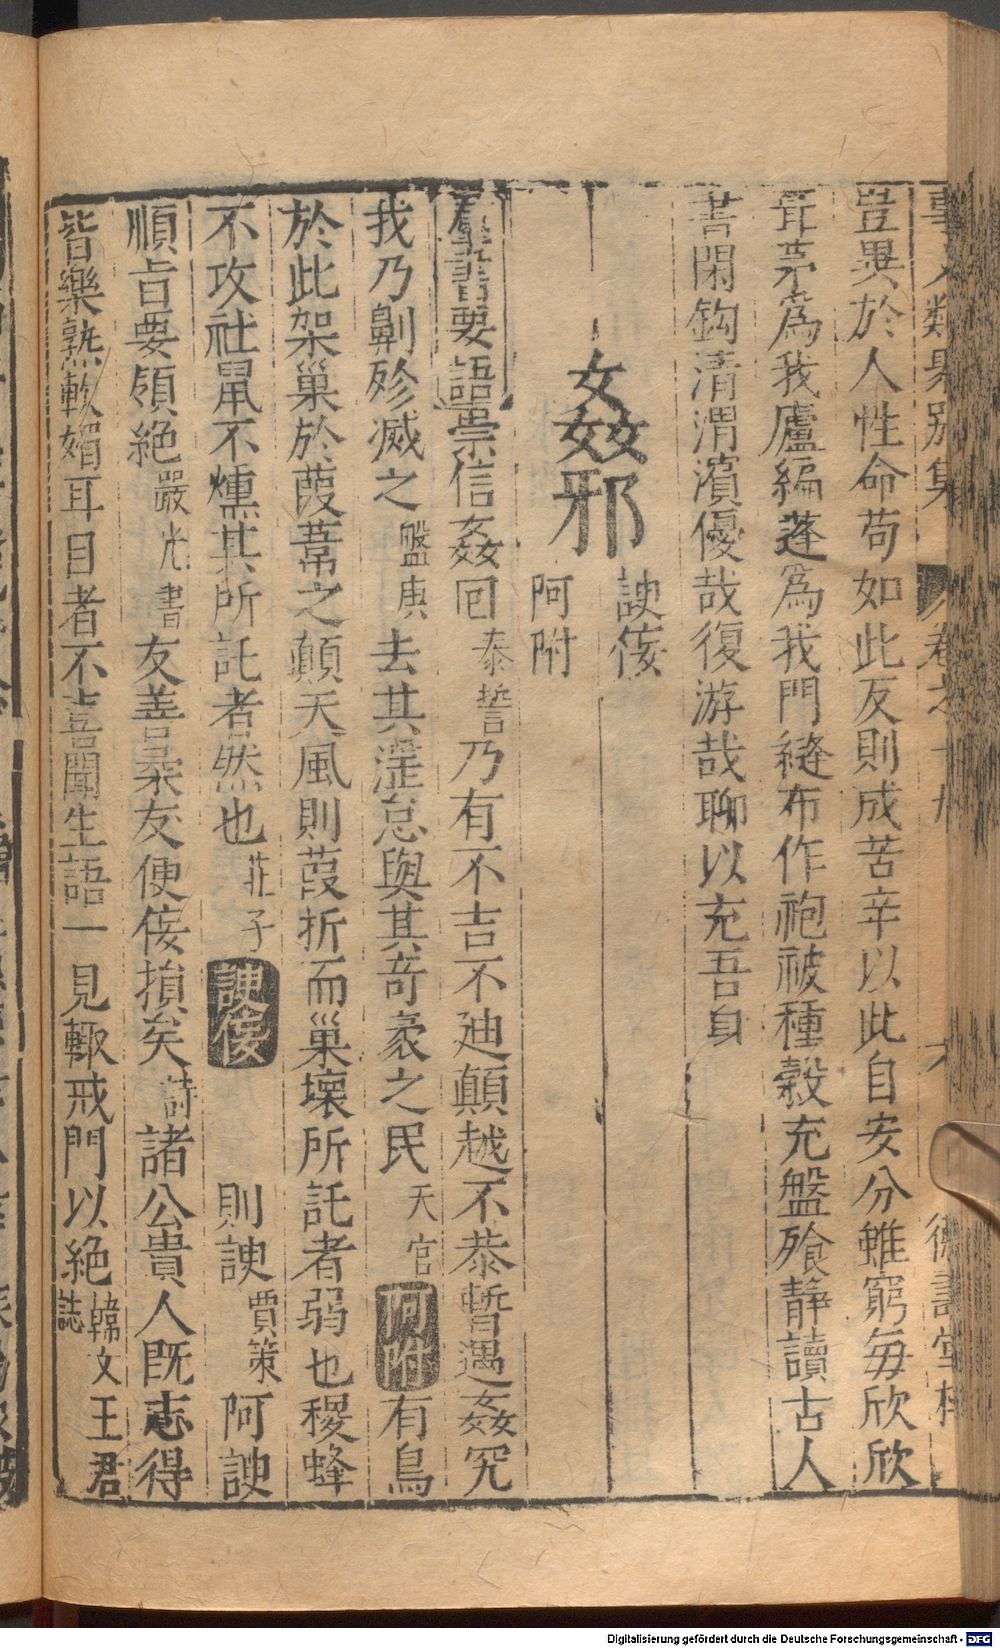 事文類聚別集 卷之十九 六 德壽堂梓
豈異於人性命苟如此反則成苦辛以此自安分雖窮每欣欣
茸茅為我廬編蓬為我門縫布作袍被種穀充盤飱靜讀古人
書閑鈎清渭濱優哉復游哉聊以充吾身
姦邪 諛佞
阿附
羣書要語崇信姦回泰誓乃有不吉不廸顛越不恭暫遇姦宄
我乃劓殄滅之盤庚去其淫怠與其奇衺之民天官阿附有鳥
於此架巢於葭葦之顛天風則葭折而巢壞所託者弱也稷蜂
不攻社鼠不燻其所託者然也莊子諛佞則諛賈策阿諛
順旨要領絶嚴光書友善柔友便佞損矣詩諸公貴人既志得
皆樂熟軟媚耳目者不喜聞生語一見輙戒門以絶韓文王君誌
Digitalisierung gefördert durch die Deutsche Forschungsgemeinschaft - DFG